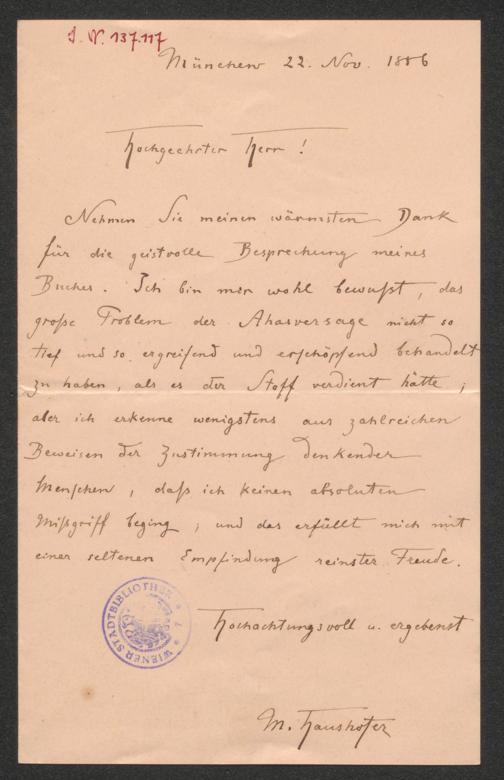 I. N. 137.117
München 22. Nov. 1886
Hochgeehrter Herr !
Nehmen Sie meinen wärmsten Dank
für die geistvolle Besprechung meines
Buches. Ich bin mir wohl bewußt, das
große Problem der Ahasversage nicht so
tief und so ergreifend und erschöpfend behandelt
zu haben, als es der Stoff verdient hätte;
aber ich erkenne wenigstens aus zahlreichen
Beweisen der Zustimmung denkender
Menschen, daß ich keinen absoluten
Mißgriff beging; und das erfüllt mich mit
einer seltenen Empfindung reinster Freude.
Hochachtungsvoll u. ergebenst
M. Haushofer
WIENER STADTBIBLIOTHEK * 7 *